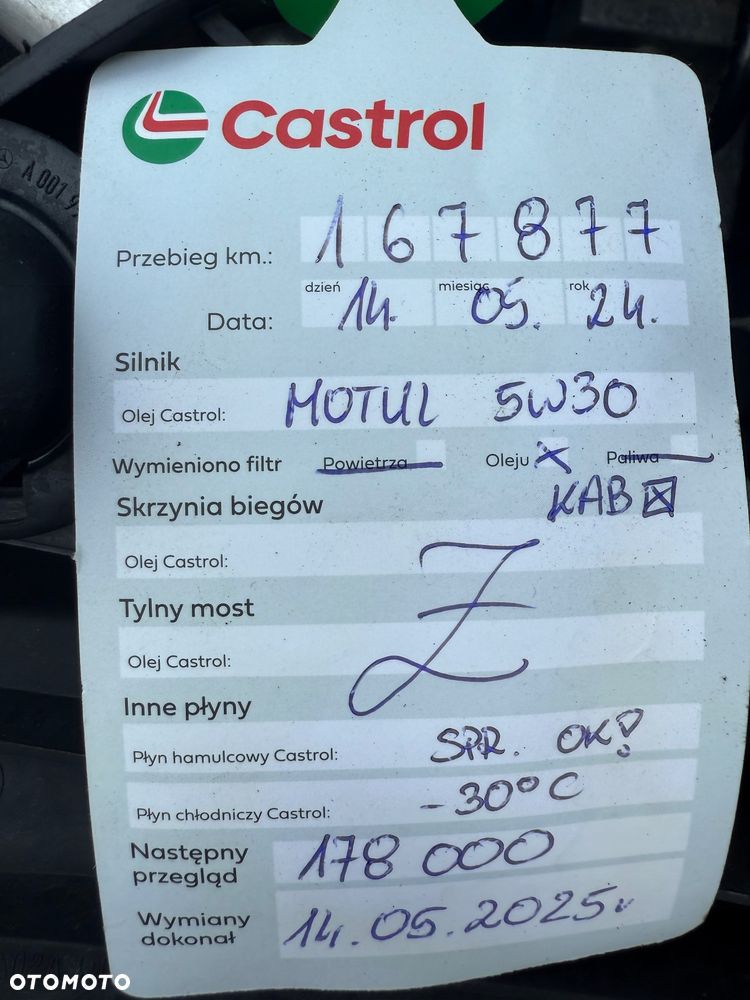 Castrol
A 001 9
Przebieg km.: 167877
dzień miesiąc rok
Data: 14. 05. 24.
Silnik
Olej Castrol: MOTUL 5W30
Wymieniono filtr Powietrza Oleju X Paliwa
KAB X
Skrzynia biegów
Olej Castrol:
Tylny most
Olej Castrol:
Inne płyny
Płyn hamulcowy Castrol: SPR. OK!
Płyn chłodniczy Castrol: -30°C
Następny
przegląd 178 000
Wymiany
dokonał 14.05.2025r
OTOMOTO